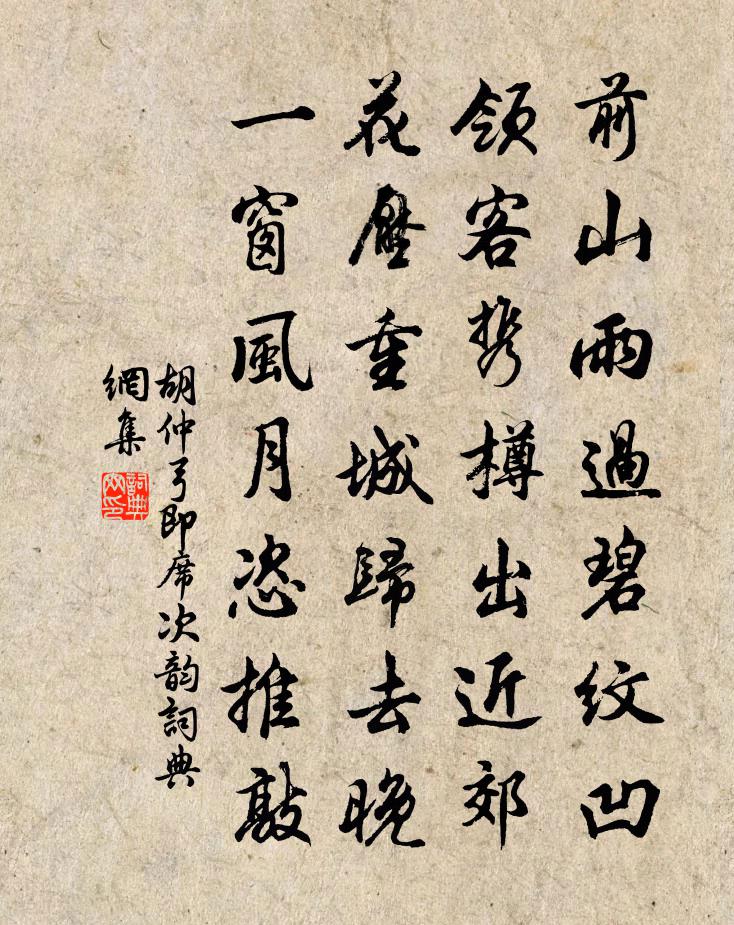 前山雨過碧紋凹
領客携樽出近郊
花壓重城歸去晚
一窗風月恣推敲
胡仲弓即席次韵詞典
網集
詞典網印